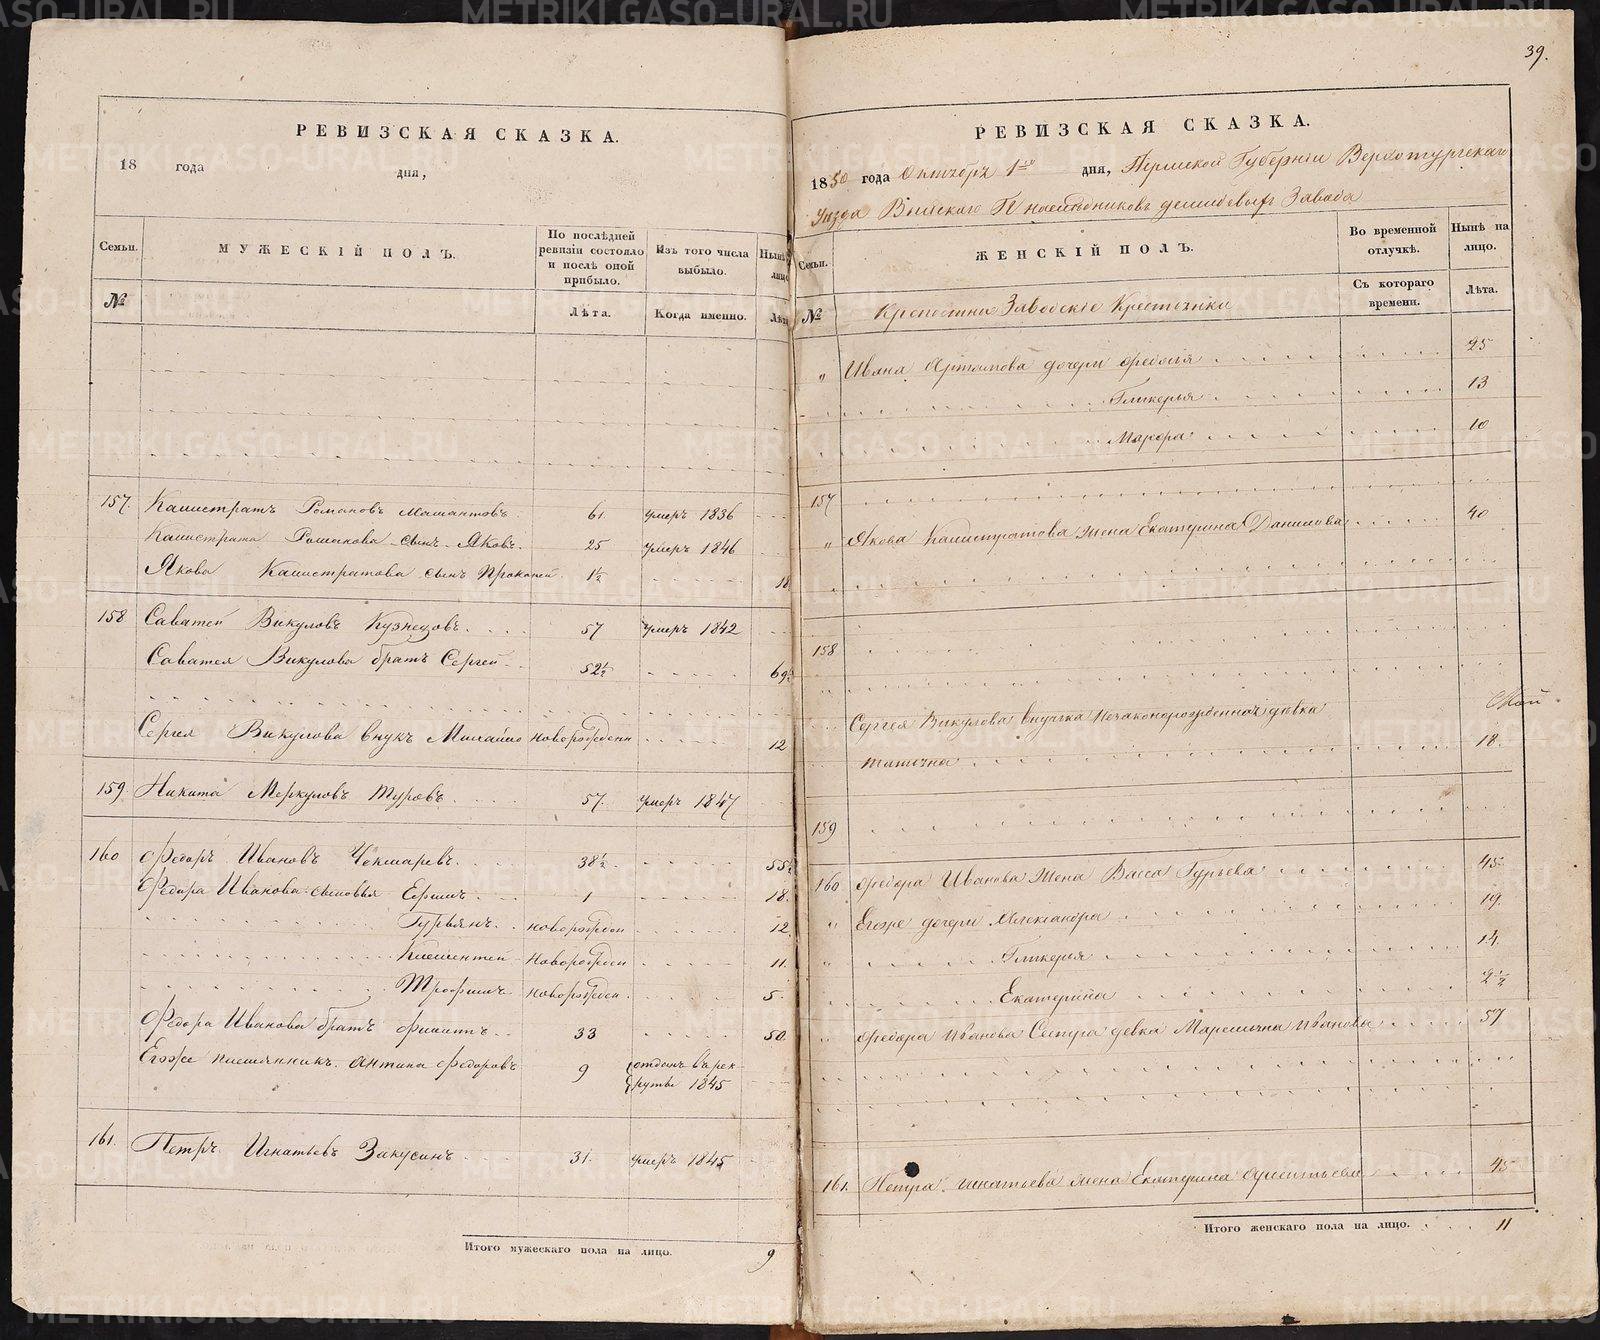 39.
РЕВИЗСКАЯ СКАЗКА.
18 года дня,
Семьи. МУЖЕСКІЙ ПОЛЪ. По послѣдней ревизіи состояло и послѣ оной прибыло. Изъ того числа выбыло. Нынѣ
№ Лѣта. Когда именно. Лѣта
157. Калистратъ Романовъ Мамантовъ 61. умеръ 1836
Калистрата Романова сынъ Яковъ. 25 умеръ 1846
Якова Калистратова сынъ Прокопей 1½ 18
158 Саватей Викуловъ Кузнецовъ. 57 умеръ 1842
Саватея Викулова братъ Сергей 52½ 69½
Сергея Викулова внукъ Михайло новорожденн 12
159. Никита Меркуловъ Туровъ. 57. умеръ 1847
160 Федоръ Ивановъ Чекмаревъ. 38½ 55½
Федора Иванова сыновья Ефимъ 1 18.
Гурьянъ. новорожден 12.
Климентей новорожден 11.
Трофимъ новорожден. 5.
Федора Иванова братъ Филиппъ 33 50.
Егоже племянникъ Антипа Федоровъ 9 отданъ въ рек-
руты 1845
161. Петръ Игнатьевъ Закусинъ 31. умеръ 1845
Итого мужескаго пола на лицо. 9
РЕВИЗСКАЯ СКАЗКА.
1850 года Октября 1го дня, Пермской Губерніи Верхотурскаго
Уѣзда Выйскаго Гг наслѣдниковъ Демидовыхъ Завода
Семьи. ЖЕНСКІЙ ПОЛЪ. Во временной отлучкѣ. Нынѣ на лицо.
№ Съ котораго времени. Лѣта.
Крепостни Заводскіе Крестьянки
„ Ивана Артамова дочери Федосья 25
Гликерья 13
Марфа 10
157
„ Якова Калистратова жена Екатерина Данилова 40
158
Сергея Викулова внучка незаконорожденная дѣвка
Татьяна 18.
159
160 Федора Иванова жена Васса Гурьева 45
„ Егоже дочери Александра 19.
Гликерья 14.
Екатерина 2½
„ Федора Иванова Сестра девка Маремьяна Иванова 57
161. Петра Игнатьева жена Екатерина 45
Итого женскаго пола на лицо. 11
METRIKI.GASO-URAL.RU